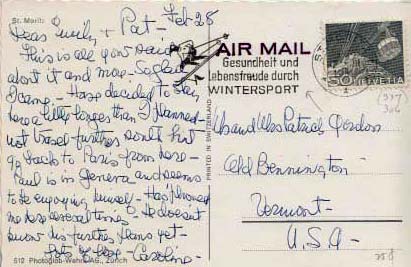 St. Moritz
Feb 28
Dears Emily + Pat -
This is all you've heard
about it and more - So glad
I came - Have decided to stay
here a little longer than I planned -
not travel further south but
go back to Paris from here -
Paul is in Geneva and seems
to be enjoying himself - Has phoned
me here several times - He doesn't
know his further plans yet -
Lots of love - Caroline -
512 Photoglob-Wehrli AG., Zürich
PRINTED IN SWITZERLAND
AIR MAIL
Gesundheit und
Lebensfreude durch
WINTERSPORT
HELVETIA
Mr and Mrs Patrick Gordon
Old Bennington
Vermont -
U.S.A -